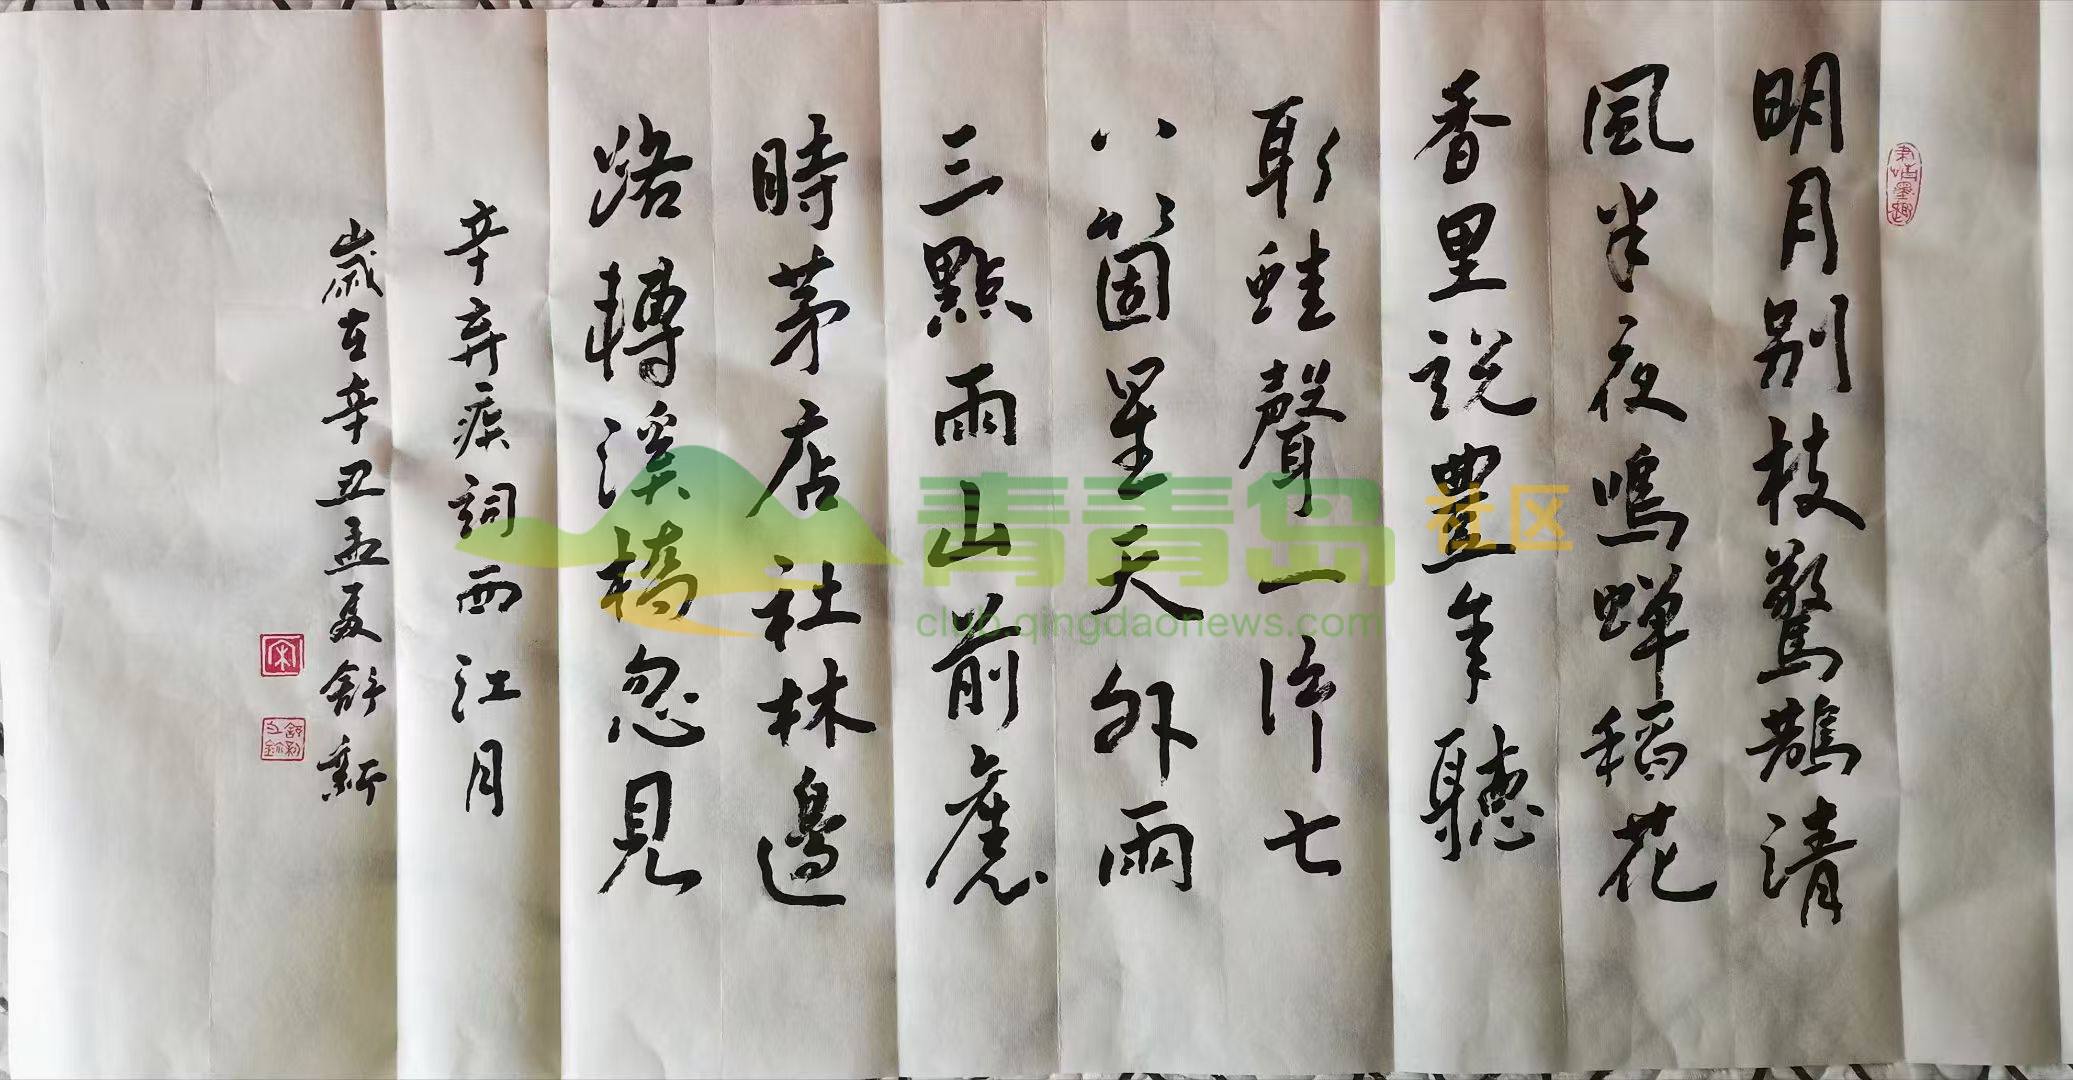 明月別枝驚鵲清
風半夜鳴蟬稻花
香里説豐年聽
取蛙聲一片七
八箇星天外雨
三點雨山前舊
時茅店社林邊
路轉溪橋忽見
辛弃疾詞西江月
歲在辛丑孟夏舒新
青青岛 社区
club.qingdaonews.com